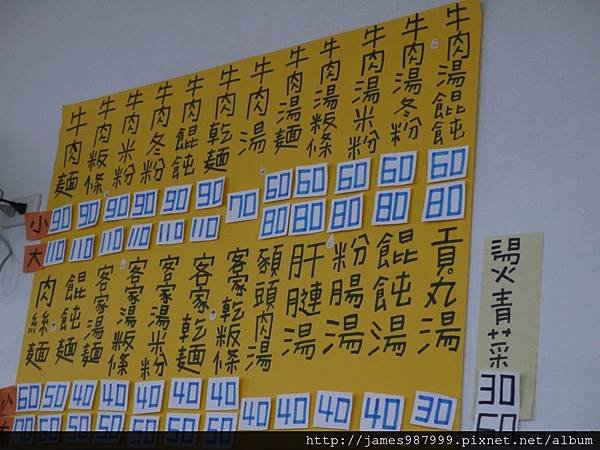 牛肉麵
牛肉粄條
牛肉米粉
牛肉冬粉
牛肉餛飩
牛肉乾麵
牛肉湯
牛肉湯麵
牛肉湯粄條
牛肉湯米粉
牛肉湯冬粉
牛肉湯餛飩
小 90 90 90 90 90 90 70 60 60 60 60 60
大 110 110 110 110 110 110 80 80 80 80 80
肉絲麵
餛飩麵
客家湯麵
客家湯粄條
客家湯米粉
客家乾麵
客家乾粄條
頭肉湯
肝腱湯
粉腸湯
餛飩湯
貢丸湯
小 60 50 40 40 40 40 40 40 40 40 40 30
大 70 60 50 50 50 50 50
燙青菜
30
http://james987999.pixnet.net/album